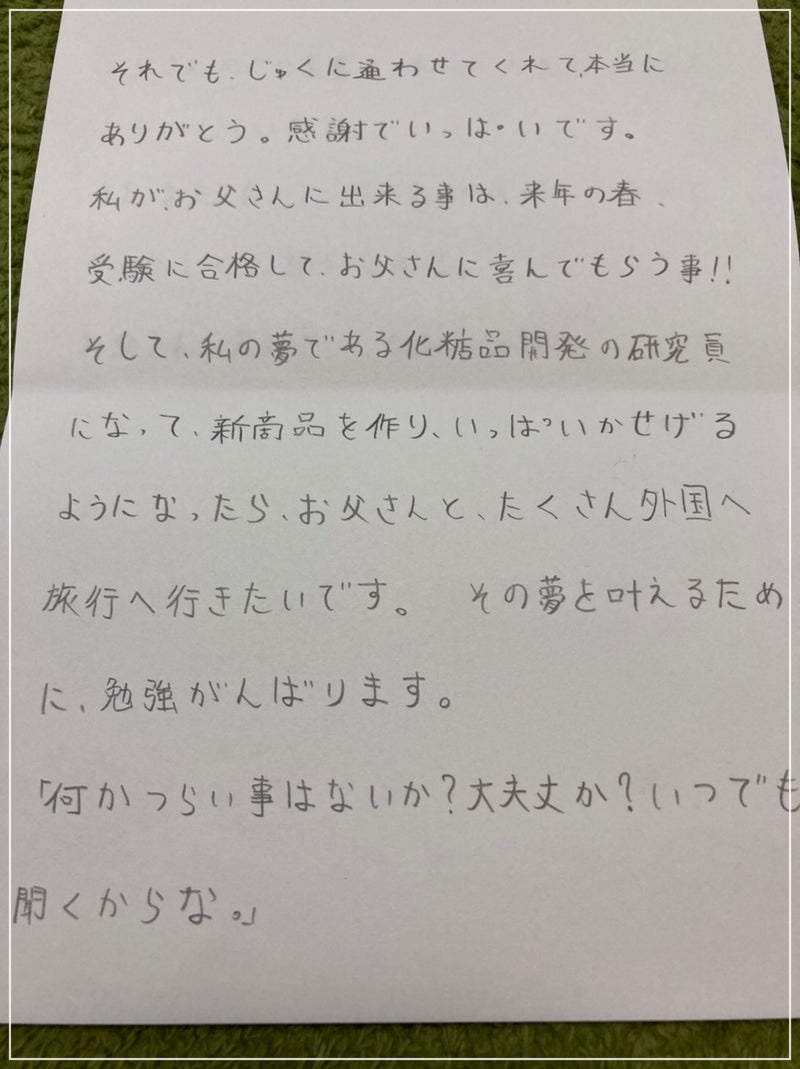 それでも、じゅくに通わせてくれて、本当に
ありがとう。感謝でいっぱいです。
私が、お父さんに出来る事は、来年の春、
受験に合格して、お父さんに喜んでもらう事!!
そして、私の夢である化粧品開発の研究員
になって、新商品を作り、いっぱいかせげる
ようになったら、お父さんと、たくさん外国へ
旅行へ行きたいです。 その夢を叶えるため
に、勉強がんばります。
「何かつらい事はないか?大夫丈か?いつでも
聞くからな。」